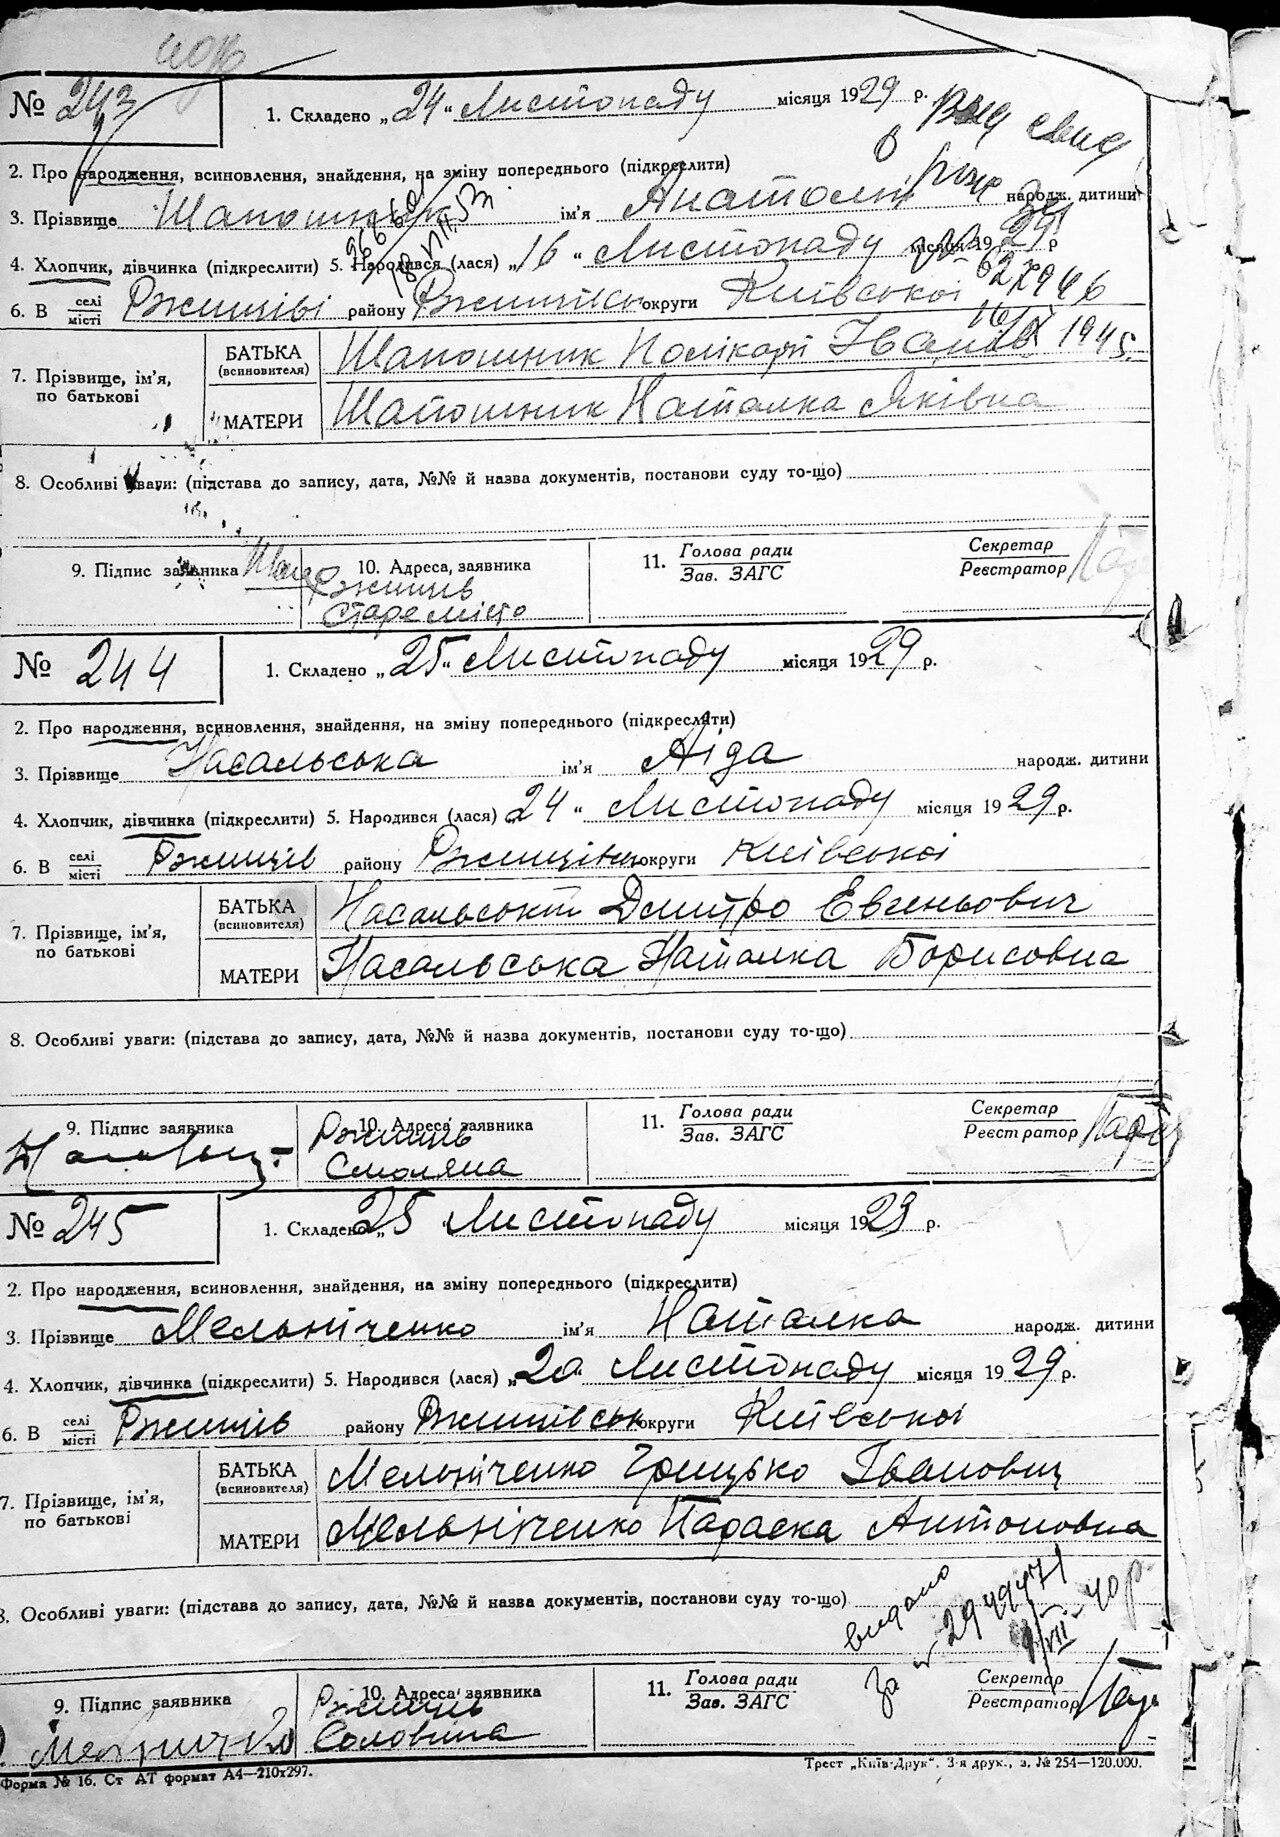 № 243
1. Складено „24“ Листопаду місяця 1929 р.
2. Про народження, всиновлення, знайдення, на зміну попереднього (підкреслити)
3. Прізвище Шапошник ім'я Анатолій народж. дитини
4. Хлопчик, дівчинка (підкреслити) 5. Народився (лася) „16“ Листопаду місяця 1929 р
6. В селі/місті Ржищіві району Ржищівськ округи Київської
627946
1945
7. Прізвище, ім'я, по батькові
БАТЬКА (всиновителя) Шапошник Полікарп Іванов
МАТЕРИ Шапошник Наталка Яківна
8. Особливі уваги: (підстава до запису, дата, №№ й назва документів, постанови суду то-що)
9. Підпис заявника
10. Адреса заявника Ржищів Старе місто
11. Голова ради / Зав. ЗАГС
Секретар / Реєстратор
№ 244
1. Складено „25“ Листопаду місяця 1929 р.
2. Про народження, всиновлення, знайдення, на зміну попереднього (підкреслити)
3. Прізвище Насальська ім'я Аіда народж. дитини
4. Хлопчик, дівчинка (підкреслити) 5. Народився (лася) 24 “ Листопаду місяця 1929 р.
6. В селі/місті Ржищів району Ржищівськ округи Київської
7. Прізвище, ім'я, по батькові
БАТЬКА (всиновителя) Насальський Дмитро Евгеньович
МАТЕРИ Насальська Наталка Борисовна
8. Особливі уваги: (підстава до запису, дата, №№ й назва документів, постанови суду то-що)
9. Підпис заявника
10. Адреса заявника Ржищів
11. Голова ради / Зав. ЗАГС
Секретар / Реєстратор
№ 245
1. Складено „25 Листопаду місяця 1929 р.
2. Про народження, всиновлення, знайдення, на зміну попереднього (підкреслити)
3. Прізвище Мельніченко ім'я Наталка народж. дитини
4. Хлопчик, дівчинка (підкреслити) 5. Народився (лася) „20 Листопаду місяця 1929 р.
6. В селі/місті Ржищів району Ржищівськ округи Київської
7. Прізвище, ім'я, по батькові
БАТЬКА (всиновителя) Мельніченко Грицько Іванович
МАТЕРИ Мельніченко Параска Антоновна
8. Особливі уваги: (підстава до запису, дата, №№ й назва документів, постанови суду то-що)
видано
за № 2949471
VII 40 р.
9. Підпис заявника
10. Адреса заявника Ржищів
11. Голова ради / Зав. ЗАГС
Секретар / Реєстратор
Форма № 16. Ст АТ формат А4—210х297.
Трест „Київ-Друк“. 3-я друк., з. № 254—120.000.